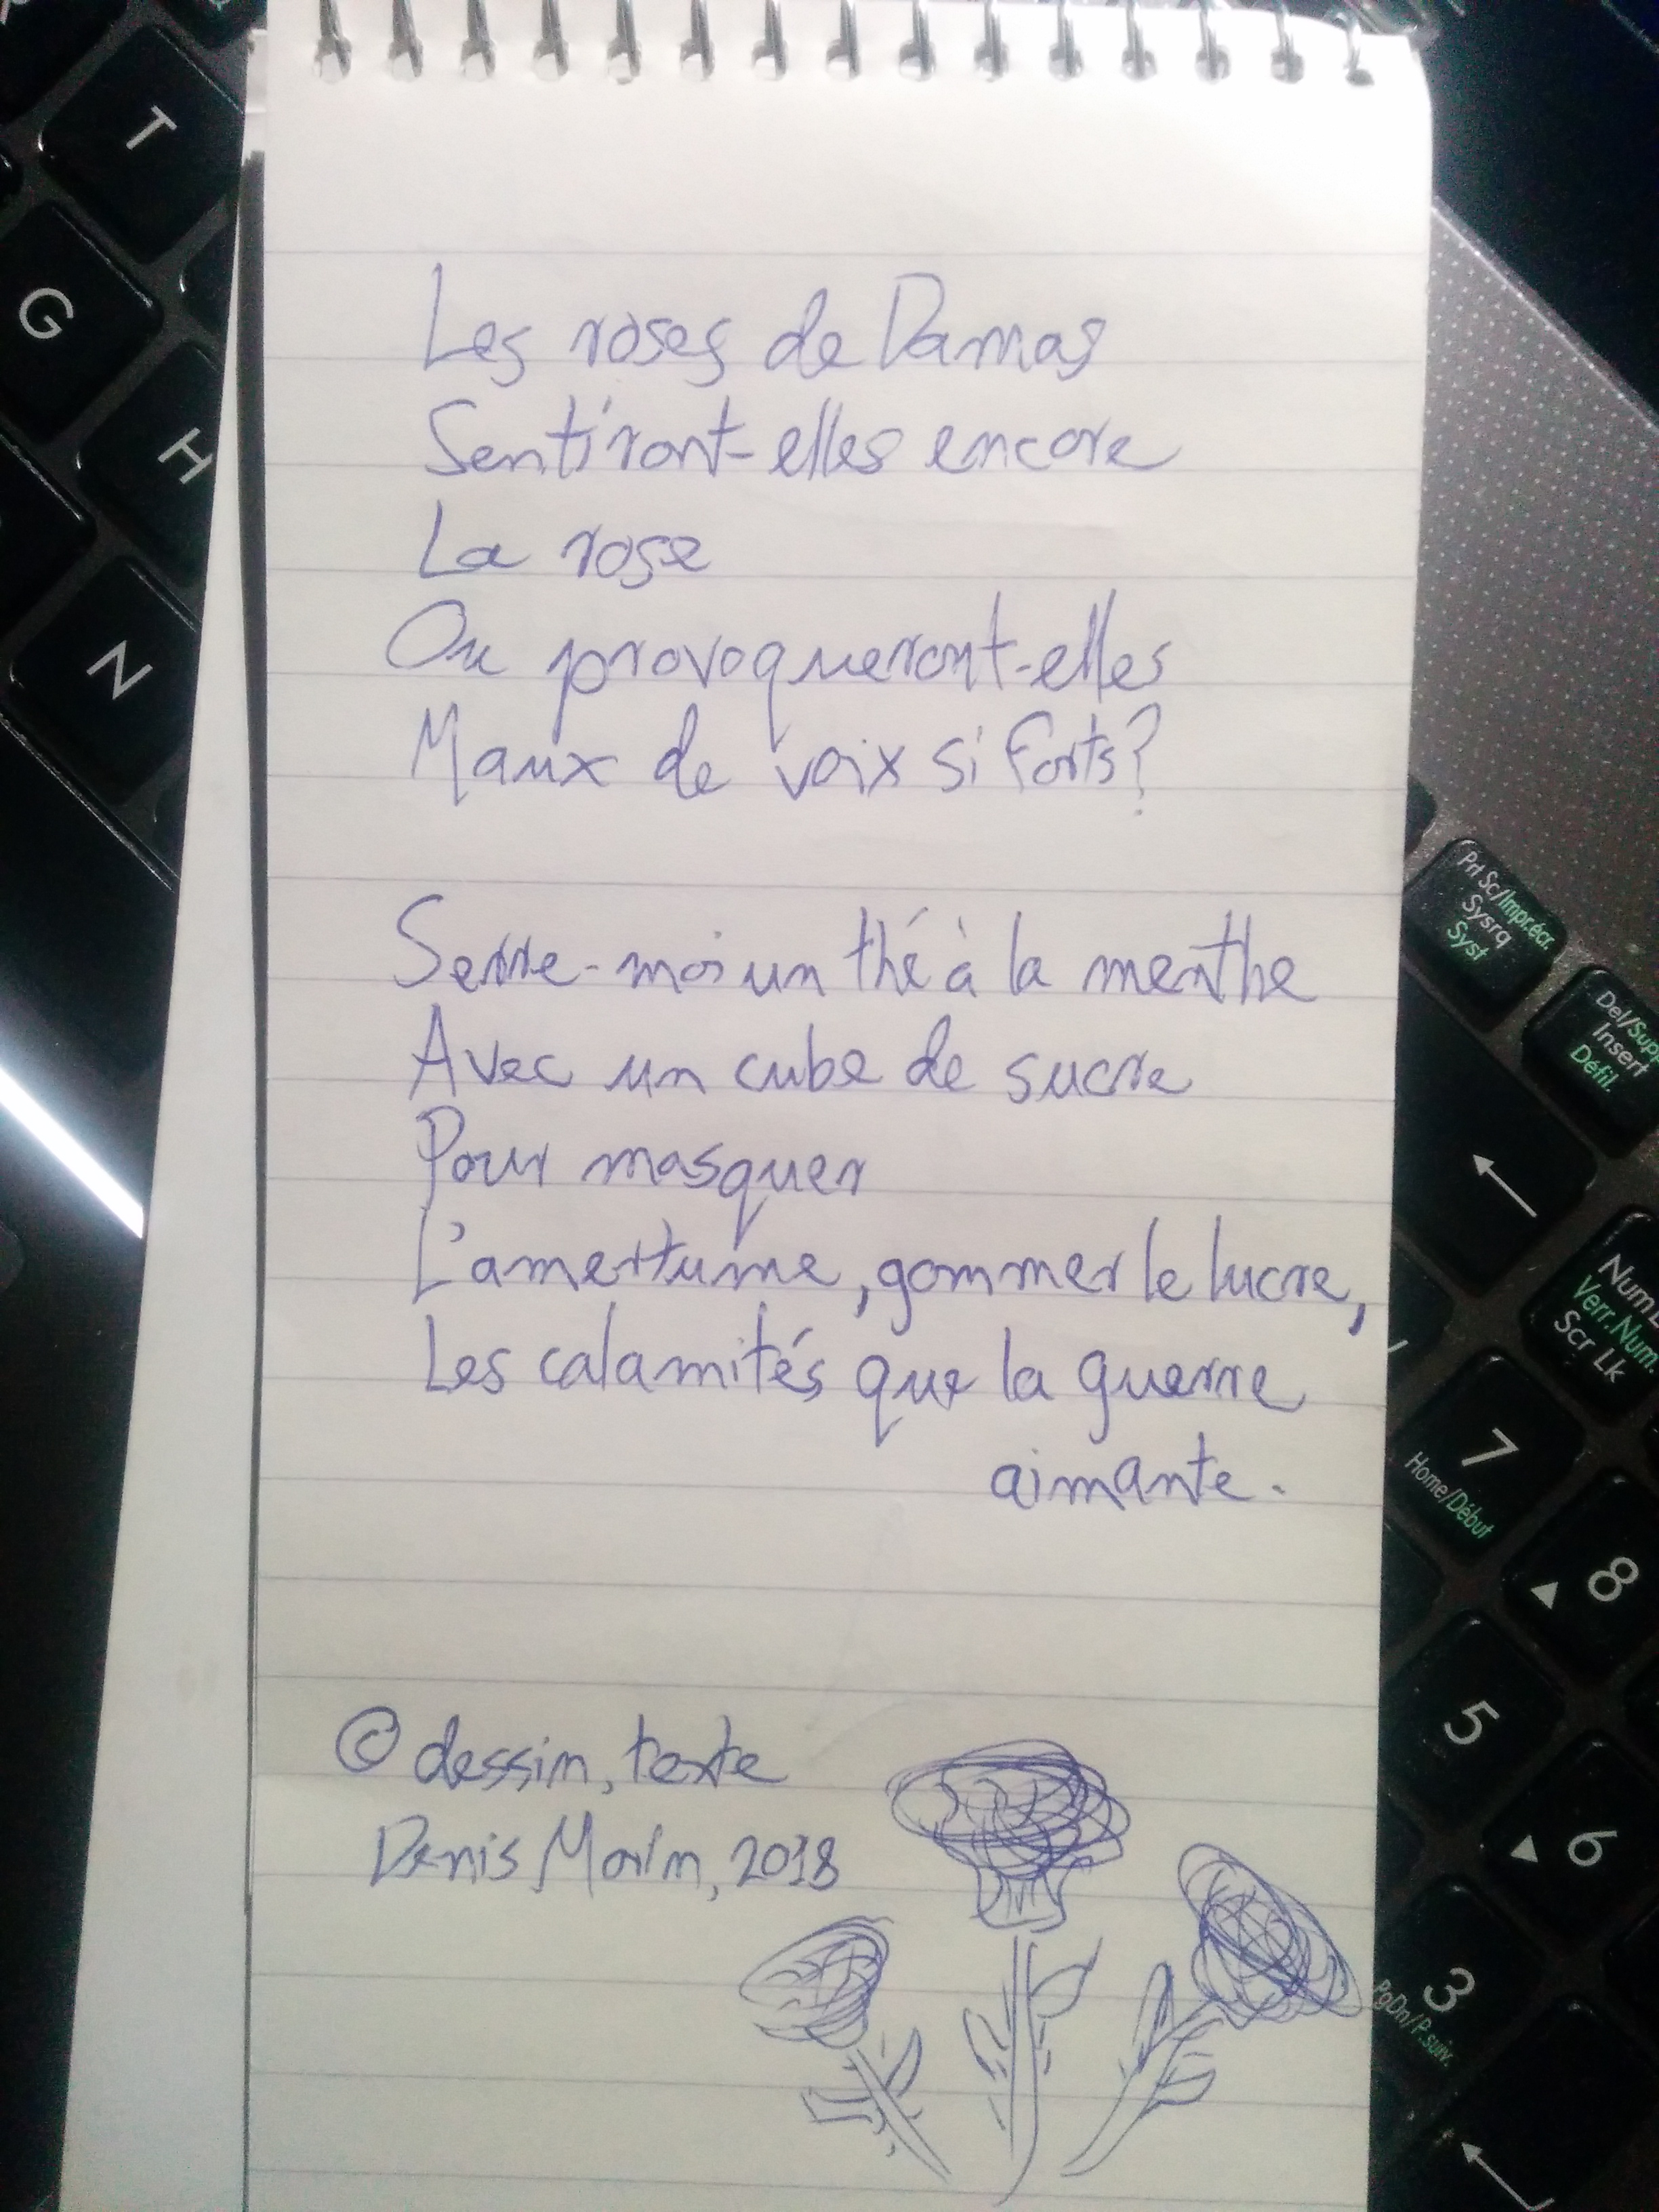 Les roses de Damas
Sentiront-elles encore
La rose
Ou provoqueront-elles
Maux de voix si forts?
Serre-moi un thé à la menthe
Avec un cube de sucre
Pour masquer
L'amertume, gommer le lucre,
Les calamités que la guerre
aimante.
© dessin, texte
Denis Morin, 2018
T
G
H
N
Prt Sc/Impr.écr.
Sysrq
Syst
Del/Supp
Insert
Défil.
Verr.Num.
Scr Lk
7
Home/Début
8
5
6
3
PgDn/P.suiv.